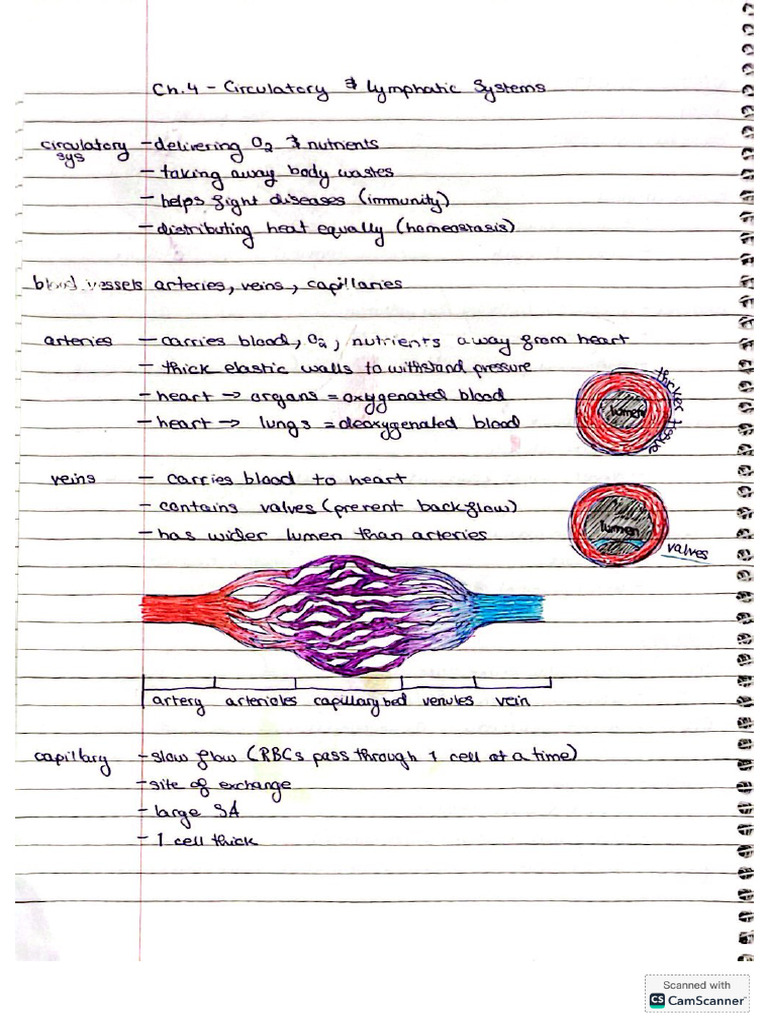 Ch.4 - Circulatory & Lymphatic Systems
circulatory sys - delivering O₂ & nutrients
- taking away body wastes
- helps fight diseases (immunity)
- distributing heat equally (homeostasis)
blood vessels arteries, veins, capillaries
arteries - carries blood, O₂, nutrients away from heart
- thick elastic walls to withstand pressure
- heart → organs = oxygenated blood
- heart → lungs = deoxygenated blood
lumen
thicker tissue
veins - carries blood to heart
- contains valves (prevent backflow)
- has wider lumen than arteries
lumen
valves
artery arterioles capillary bed venules vein
capillary - slow flow (RBCs pass through 1 cell at a time)
- site of exchange
- large SA
- 1 cell thick
Scanned with
CS CamScanner